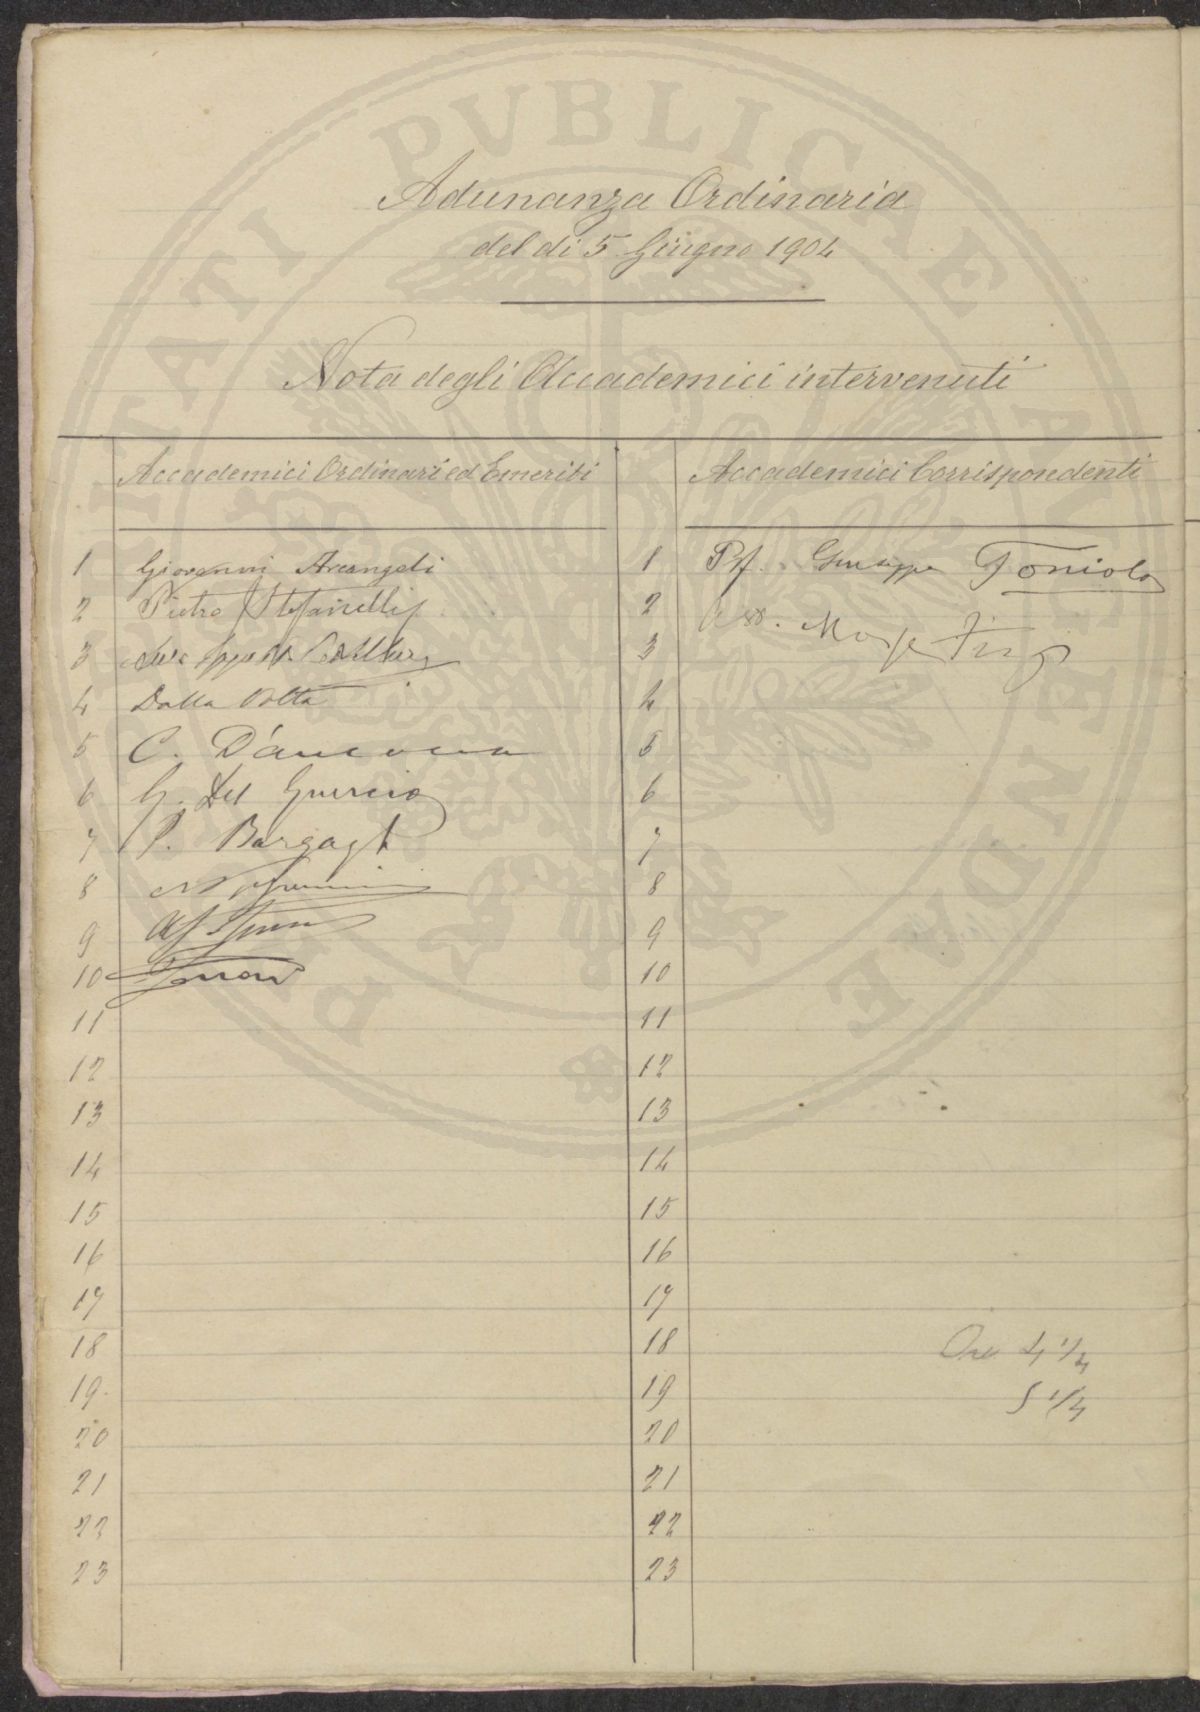 Adunanza Ordinaria
del dì 5 Giugno 1904
Nota degli Accademici intervenuti
Accademici Ordinari ed Emeriti
Accademici Corrispondenti
1 Giovanni Arcangeli
2 Pietro Stefanelli
3
4 Dalla Volta
5 C. D'Ancona
6 G. Del Guercio
7 P. Bargagli
8
9
10
11
12
13
14
15
16
17
18
19
20
21
22
23
1 Prf. Giuseppe Toniolo
2
3
4
5
6
7
8
9
10
11
12
13
14
15
16
17
18
19
20
21
22
23
Ore 4 1/4
5 1/4
PROSPERITATI PVBLICAE AVGENDAE